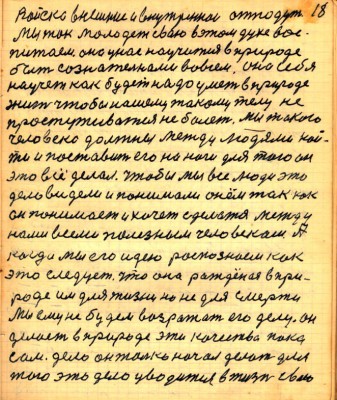 18
Войска внешние и внутренние отпадут
Мы так молодежь свою в этом духе вос-
питаем она у нас научится в природе
быть сознательными во всем. она себя
научет как будет надо умет в природе
жит чтобы нашему такому телу не
простуживатся не болет. мы такого
человека должны между людями най-
ти и поставить его на ноги для того он
это всё делал. чтобы мы все люди это
дело видели и понимали о нём так как
он понимает и хочет сделатся между
нами всеми полезным человекам А
когда мы его идею распознаем как
это следует. что она рждёная в при-
роде им для жизни но не для смерти
Мы ему не будем возражат его делу. он
делает в природе эти качества пока
сам. дело он только начал делат для
того это дело уводится в жизн свою